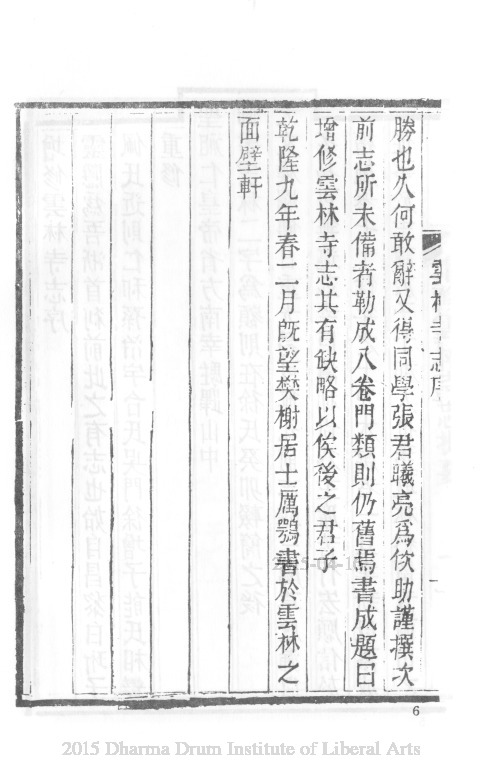 雲林寺志序
勝也久何敢辭又得同學張君曦亮爲佽助謹撰次
前志所未備者勒成八卷門類則仍舊焉書成題曰
增修雲林寺志其有缺略以俟後之君子
乾隆九年春二月旣望樊榭居士厲鶚書於雲林之
面壁軒
6
2015 Dharma Drum Institute of Liberal Arts